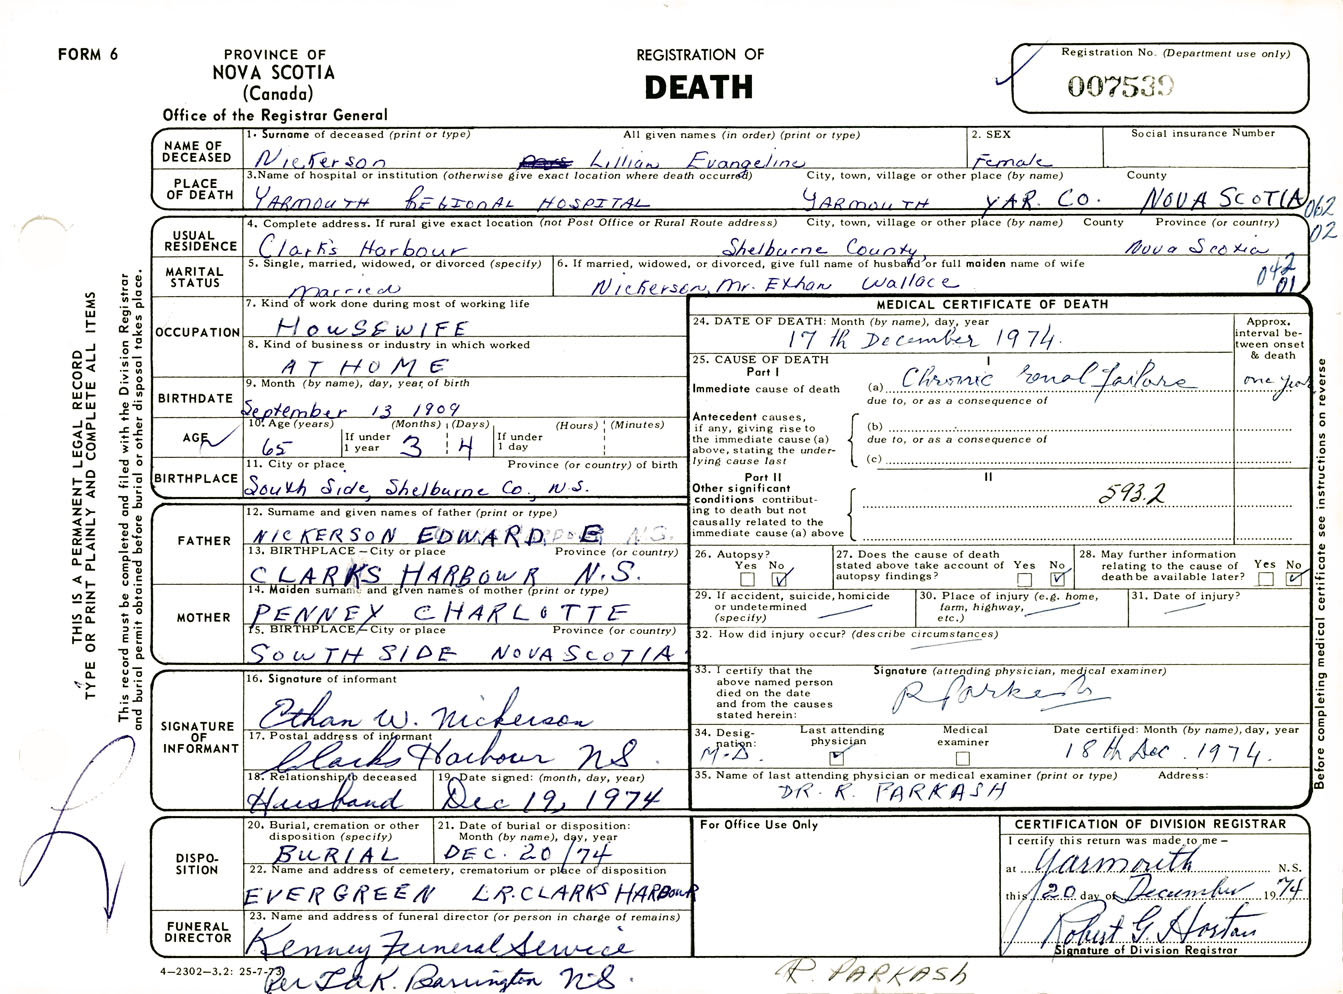 FORM 6
PROVINCE OF
NOVA SCOTIA
(Canada)
Office of the Registrar General
REGISTRATION OF
DEATH
Registration No. (Department use only)
007539
THIS IS A PERMANENT LEGAL RECORD
TYPE OR PRINT PLAINLY AND COMPLETE ALL ITEMS
This record must be completed and filed with the Division Registrar
and burial permit obtained before burial or other disposal takes place.
NAME OF DECEASED
1. Surname of deceased (print or type) All given names (in order) (print or type) 2. SEX Social insurance Number
Nickerson Lillian Evangeline Female
PLACE OF DEATH
3. Name of hospital or institution (otherwise give exact location where death occurred) City, town, village or other place (by name) County
YARMOUTH REGIONAL HOSPITAL YARMOUTH YAR. CO. NOVA SCOTIA
062
02
USUAL RESIDENCE
4. Complete address. If rural give exact location (not Post Office or Rural Route address) City, town, village or other place (by name) County Province (or country)
Clark's Harbour Shelburne County, Nova Scotia
MARITAL STATUS
5. Single, married, widowed, or divorced (specify) 6. If married, widowed, or divorced, give full name of husband or full maiden name of wife
married Nickerson, Mr. Ethan Wallace
042
01
OCCUPATION
7. Kind of work done during most of working life
HOUSEWIFE
8. Kind of business or industry in which worked
AT HOME
BIRTHDATE
9. Month (by name), day, year, of birth
September 13 1909
AGE
10. Age (years) (Months) (Days) (Hours) (Minutes)
65 If under 1 year 3 4 If under 1 day
BIRTHPLACE
11. City or place Province (or country) of birth
South Side, Shelburne Co., N.S.
FATHER
12. Surname and given names of father (print or type)
NICKERSON EDWARD E N.S.
13. BIRTHPLACE – City or place Province (or country)
CLARKS HARBOUR N.S.
MOTHER
14. Maiden surname and given names of mother (print or type)
PENNEY CHARLOTTE
15. BIRTHPLACE – City or place Province (or country)
SOUTH SIDE NOVA SCOTIA
SIGNATURE OF INFORMANT
16. Signature of informant
Ethan W. Nickerson
17. Postal address of informant
Clarks Harbour NS.
18. Relationship to deceased 19. Date signed: (month, day, year)
Husband Dec 19, 1974
DISPOSITION
20. Burial, cremation or other disposition (specify) 21. Date of burial or disposition: Month (by name), day, year
BURIAL DEC. 20/74
22. Name and address of cemetery, crematorium or place of disposition
EVERGREEN L.R. CLARKS HARBOUR
FUNERAL DIRECTOR
23. Name and address of funeral director (or person in charge of remains)
Kenney Funeral Service
4–2302–3.2: 25-7-73
Barrington NS.
MEDICAL CERTIFICATE OF DEATH
24. DATE OF DEATH: Month (by name), day, year
17th December 1974.
Approx. interval between onset & death
25. CAUSE OF DEATH
Part I I
Immediate cause of death (a) Chronic renal failure one year
due to, or as a consequence of
Antecedent causes, if any, giving rise to the immediate cause (a) above, stating the underlying cause last
(b)
due to, or as a consequence of
(c)
Part II II
Other significant conditions contributing to death but not causally related to the immediate cause (a) above
593.2
26. Autopsy? Yes No
27. Does the cause of death stated above take account of autopsy findings? Yes No
28. May further information relating to the cause of death be available later? Yes No
29. If accident, suicide, homicide or undetermined (specify)
30. Place of injury (e.g. home, farm, highway, etc.)
31. Date of injury?
32. How did injury occur? (describe circumstances)
33. I certify that the above named person died on the date and from the causes stated herein:
Signature (attending physician, medical examiner)
R Parkash
34. Designation: Last attending physician Medical examiner Date certified: Month (by name), day, year
M.D. 18th Dec. 1974.
35. Name of last attending physician or medical examiner (print or type) Address:
DR. R. PARKASH
For Office Use Only
CERTIFICATION OF DIVISION REGISTRAR
I certify this return was made to me –
at Yarmouth N.S.
this 20 day of December 1974
Robert G Horton
Signature of Division Registrar
R. PARKASH
Before completing medical certificate see instructions on reverse